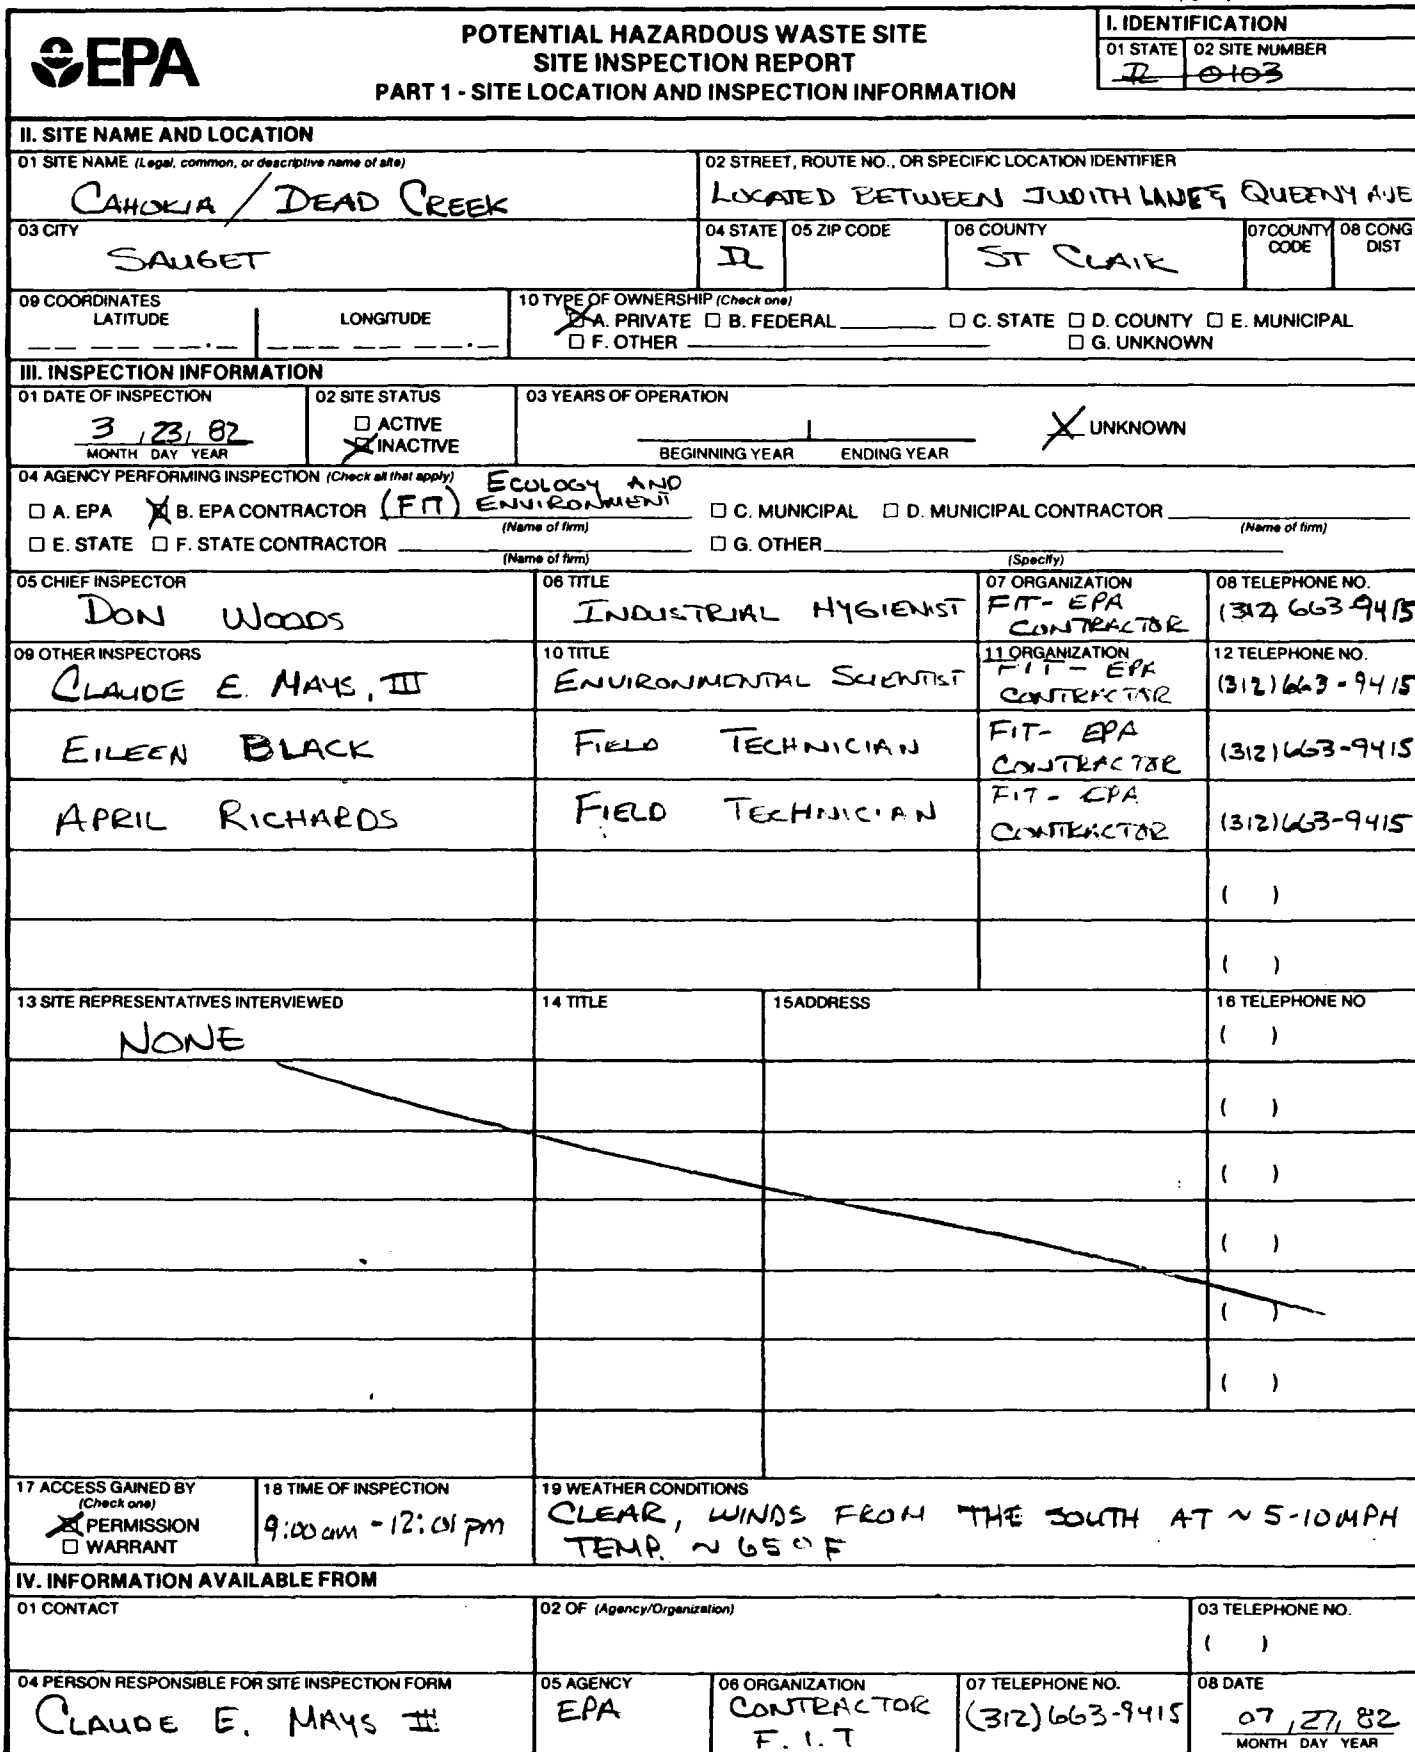 EPA
POTENTIAL HAZARDOUS WASTE SITE
SITE INSPECTION REPORT
PART 1 - SITE LOCATION AND INSPECTION INFORMATION
I. IDENTIFICATION
01 STATE 02 SITE NUMBER
IL 0103
II. SITE NAME AND LOCATION
01 SITE NAME (Legal, common, or descriptive name of site)
CAHOKIA / DEAD CREEK
02 STREET, ROUTE NO., OR SPECIFIC LOCATION IDENTIFIER
LOCATED BETWEEN JUDITH LANE & QUEENY AVE
03 CITY
SAUGET
04 STATE
IL
05 ZIP CODE
06 COUNTY
ST CLAIR
07 COUNTY CODE
08 CONG DIST
09 COORDINATES
LATITUDE LONGITUDE
10 TYPE OF OWNERSHIP (Check one)
☒ A. PRIVATE ☐ B. FEDERAL ☐ C. STATE ☐ D. COUNTY ☐ E. MUNICIPAL
☐ F. OTHER ☐ G. UNKNOWN
III. INSPECTION INFORMATION
01 DATE OF INSPECTION
3 , 23, 82
MONTH DAY YEAR
02 SITE STATUS
☐ ACTIVE
☒ INACTIVE
03 YEARS OF OPERATION
BEGINNING YEAR ENDING YEAR
X UNKNOWN
04 AGENCY PERFORMING INSPECTION (Check all that apply)
☐ A. EPA ☒ B. EPA CONTRACTOR (FIT) ECOLOGY AND ENVIRONMENT
(Name of firm)
☐ C. MUNICIPAL ☐ D. MUNICIPAL CONTRACTOR
(Name of firm)
☐ E. STATE ☐ F. STATE CONTRACTOR
(Name of firm)
☐ G. OTHER
(Specify)
05 CHIEF INSPECTOR
DON WOODS
06 TITLE
INDUSTRIAL HYGIENIST
07 ORGANIZATION
FIT- EPA
CONTRACTOR
08 TELEPHONE NO.
(312) 663-9415
09 OTHER INSPECTORS
CLAUDE E. MAYS, III
10 TITLE
ENVIRONMENTAL SCIENTIST
11 ORGANIZATION
FIT - EPA
CONTRACTOR
12 TELEPHONE NO.
(312) 663-9415
EILEEN BLACK
FIELD TECHNICIAN
FIT- EPA
CONTRACTOR
(312) 663-9415
APRIL RICHARDS
FIELD TECHNICIAN
FIT - EPA
CONTRACTOR
(312) 663-9415
( )
( )
13 SITE REPRESENTATIVES INTERVIEWED
NONE
14 TITLE
15 ADDRESS
16 TELEPHONE NO
( )
( )
( )
( )
( )
( )
17 ACCESS GAINED BY
(Check one)
☒ PERMISSION
☐ WARRANT
18 TIME OF INSPECTION
9:00 am - 12:01 pm
19 WEATHER CONDITIONS
CLEAR, WINDS FROM THE SOUTH AT ~ 5-10 MPH
TEMP. ~ 65° F
IV. INFORMATION AVAILABLE FROM
01 CONTACT
02 OF (Agency/Organization)
03 TELEPHONE NO.
( )
04 PERSON RESPONSIBLE FOR SITE INSPECTION FORM
CLAUDE E. MAYS III
05 AGENCY
EPA
06 ORGANIZATION
CONTRACTOR
F.I.T
07 TELEPHONE NO.
(312) 663-9415
08 DATE
07 , 27, 82
MONTH DAY YEAR